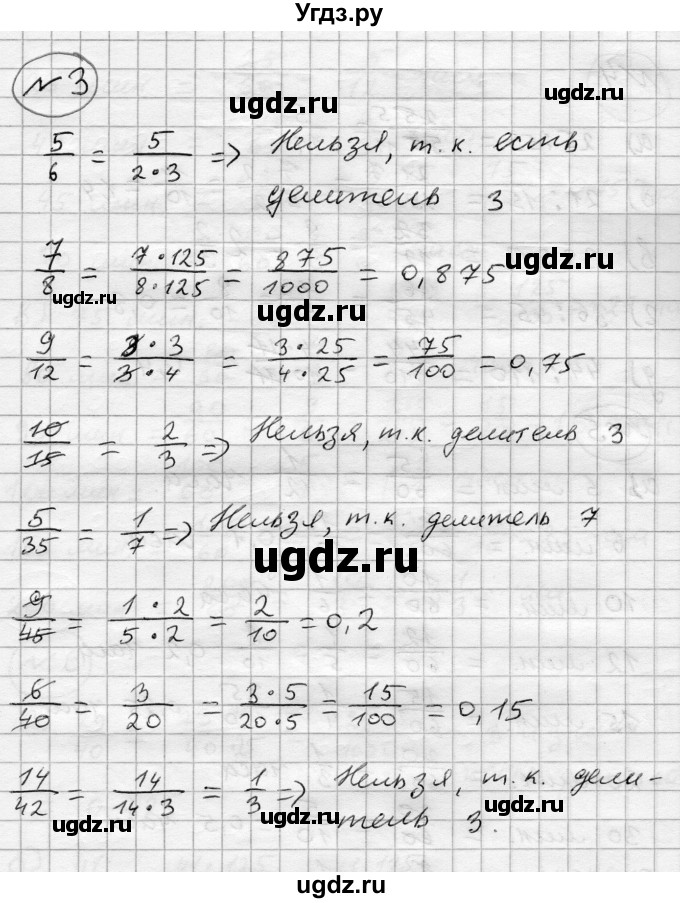 Угдз.ру
№ 3
ugdz.ru ugdz.ru
5/6 = 5/(2·3) => Нельзя, т.к. есть
делитель 3
ugdz.ru
7/8 = (7·125)/(8·125) = 875/1000 = 0,875
ugdz.ru ugdz.ru
9/12 = (3·3)/(3·4) = (3·25)/(4·25) = 75/100 = 0,75
ugdz.ru
10/15 = 2/3 => Нельзя, т.к. делитель 3
ugdz.ru ugdz.ru
5/35 = 1/7 => Нельзя, т.к. делитель 7
ugdz.ru
9/45 = (1·2)/(5·2) = 2/10 = 0,2
ugdz.ru ugdz.ru
6/40 = 3/20 = (3·5)/(20·5) = 15/100 = 0,15
ugdz.ru
14/42 = 14/(14·3) = 1/3 => Нельзя, т.к. дели-
тель 3.
ugdz.ru ugdz.ru ugdz.ru
ugdz.ru